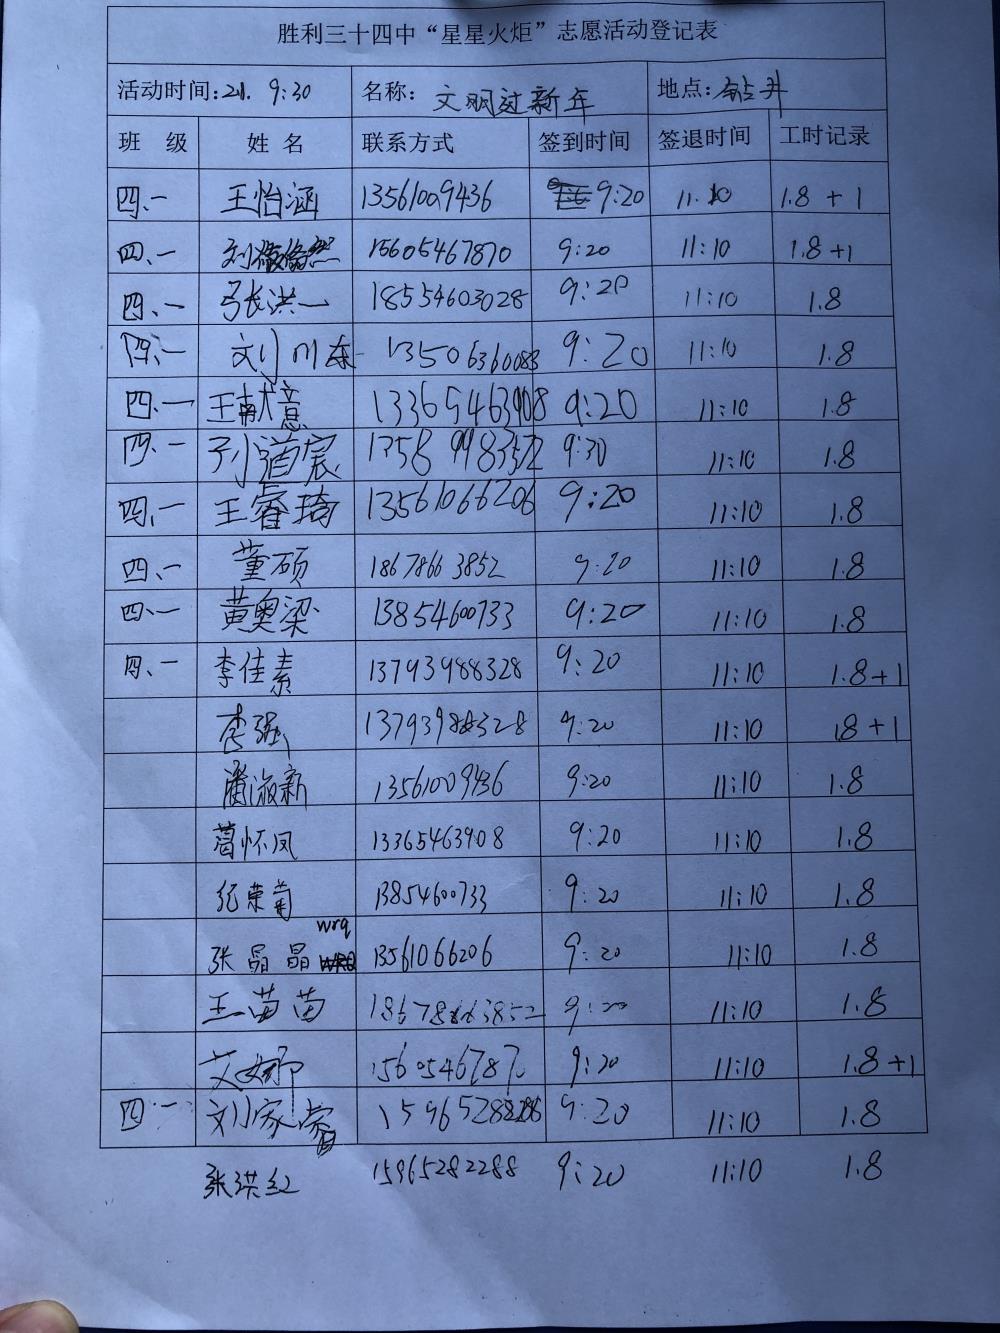 胜利三十四中“星星火炬”志愿活动登记表
活动时间:21. 9:30 名称: 文明过新年 地点: 钻井
班 级 姓 名 联系方式 签到时间 签退时间 工时记录
四、一 王怡涵 13561009436 9:20 11:10 1.8 + 1
四、一 刘 15605467870 9:20 11:10 1.8+1
四、一 张洪一 18554603028 9:20 11:10 1.8
四、一 刘川东 13506360083 9:20 11:10 1.8
四、一 王献意 13365463908 9:20 11:10 1.8
四、一 孙道宸 1358 998352 9:30 11:10 1.8
四、一 王睿琦 13561066206 9:20 11:10 1.8
四、一 董硕 18678663852 9:20 11:10 1.8
四、一 黄奥梁 13854600733 9:20 11:10 1.8
四、一 李佳素 13793988328 9:20 11:10 1.8+1
李强 13793988328 9:20 11:10 1.8 +1
潘淑新 13561009436 9:20 11:10 1.8
葛怀凤 13365463908 9:20 11:10 1.8
纪荣菊 13854600733 9:20 11:10 1.8
wrq
张晶晶 13561066206 9:20 11:10 1.8
王苗苗 18678663852 9:20 11:10 1.8
艾娜 1560546787 9:20 11:10 1.8+1
四、一 刘家 9:20 11:10 1.8
张洪红 15965282288 9:20 11:10 1.8